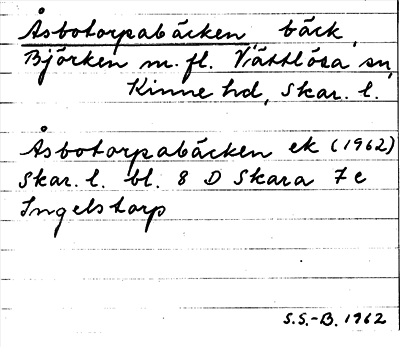 Åsbotorpabäcken, bäck,
Björken m. fl. Vättlösa sn,
Kinne hd, Skar. l.
Åsbotorpabäcken ek (1962)
Skar. l. bl. 8 D Skara 7 e
Ingelstorp
S.S.-B. 1962